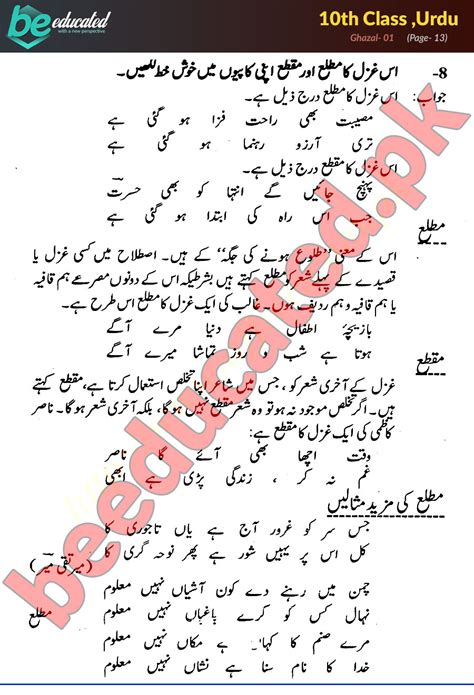 be educated
with a new perspective
10th Class ,Urdu
Ghazal- 01 (Page- 13)
8- اس غزل کا مطلع اور مقطع اپنی کاپیوں میں خوش خط لکھیں۔
جواب: اس غزل کا مطلع درج ذیل ہے۔
مصیبت بھی راحت فزا ہو گئی ہے
تری آرزو رہنما ہو گئی ہے
اس غزل کا مقطع درج ذیل ہے۔
پہنچ جائیں گے انتہا کو بھی حسرتؔ
جب اس راہ کی ابتدا ہو گئی ہے
مطلع
اس کے معنی ’’طلوع ہونے کی جگہ‘‘ کے ہیں۔ اصطلاح میں کسی غزل یا
قصیدے کے پہلے شعر کو مطلع کہتے ہیں بشرطیکہ اس کے دونوں مصرعے ہم قافیہ
یا ہم قافیہ و ہم ردیف ہوں۔ غالب کی ایک غزل کا مطلع اس طرح ہے۔
بازیچۂ اطفال ہے دنیا مرے آگے
ہوتا ہے شب و روز تماشا میرے آگے
مقطع
غزل کے آخری شعر کو ، جس میں شاعر اپنا تخلص استعمال کرتا ہے، مقطع کہتے
ہیں۔ اگر تخلص موجود نہ ہو تو وہ شعر مقطع نہیں ہوگا، بلکہ آخری شعر ہوگا۔ ناصر
کاظمی کی ایک غزل کا مقطع ہے:
وقت اچھا بھی آئے گا ناصر
غم نہ کر ، زندگی پڑی ہے ابھی
مطلع کی مزید مثالیں
جس سر کو غرور آج ہے یاں تاجوری کا
کل اس پر یہیں شور ہے پھر نوحہ گری کا (میر تقی میر)
چمن میں رہنے دے کون آشیاں نہیں معلوم
نہال کس کو کرے باغباں نہیں معلوم مطلع
مرے صنم کا کہا'۔ ہے مکاں نہیں معلوم
خدا کا نام سنا ہے نشاں نہیں معلوم
beeducated.pk